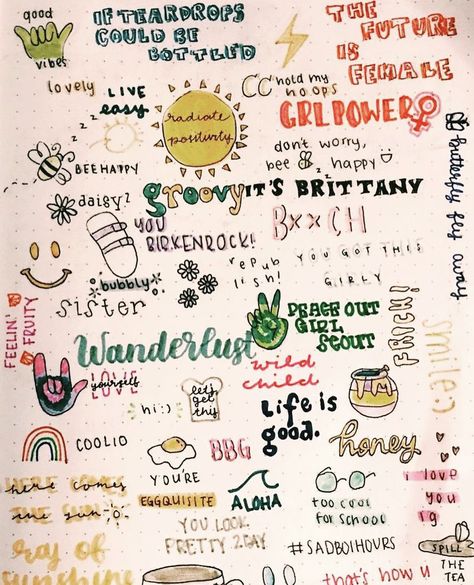 good
vibes
IF TEARDROPS
COULD BE
BOTTLED
THE
FUTURE
IS
FEMALE
lovely
LIVE
easy
hold my
hoops
GRLPOWER
radiate
positivity
z
z
z
BEE HAPPY
don't worry,
bee happy
butterfly fly away
daisy
groovy
IT'S BRITTANY
YOU
BIRKENROCK!
BxxCH
bubbly
repub
lish!
YOU GOT THIS
GIRLY
FEELIN'
FRUITY
sister
PEACE OUT
GIRL
SCOUT
FRICK!
smile :)
Wanderlust
wild
child
LOVE
yourself
hi :)
let's
get
this
LiFe is
good.
honey
COOLIO
BBG
YOU'RE
EGGQUISITE
ALOHA
too cool
for school
i love
you
ig
here comes
the sun
YOU LOOK
PRETTY 2DAY
#SADBOIHOURS
SPILL
THE
TEA
ray of
sunshine
that's how u